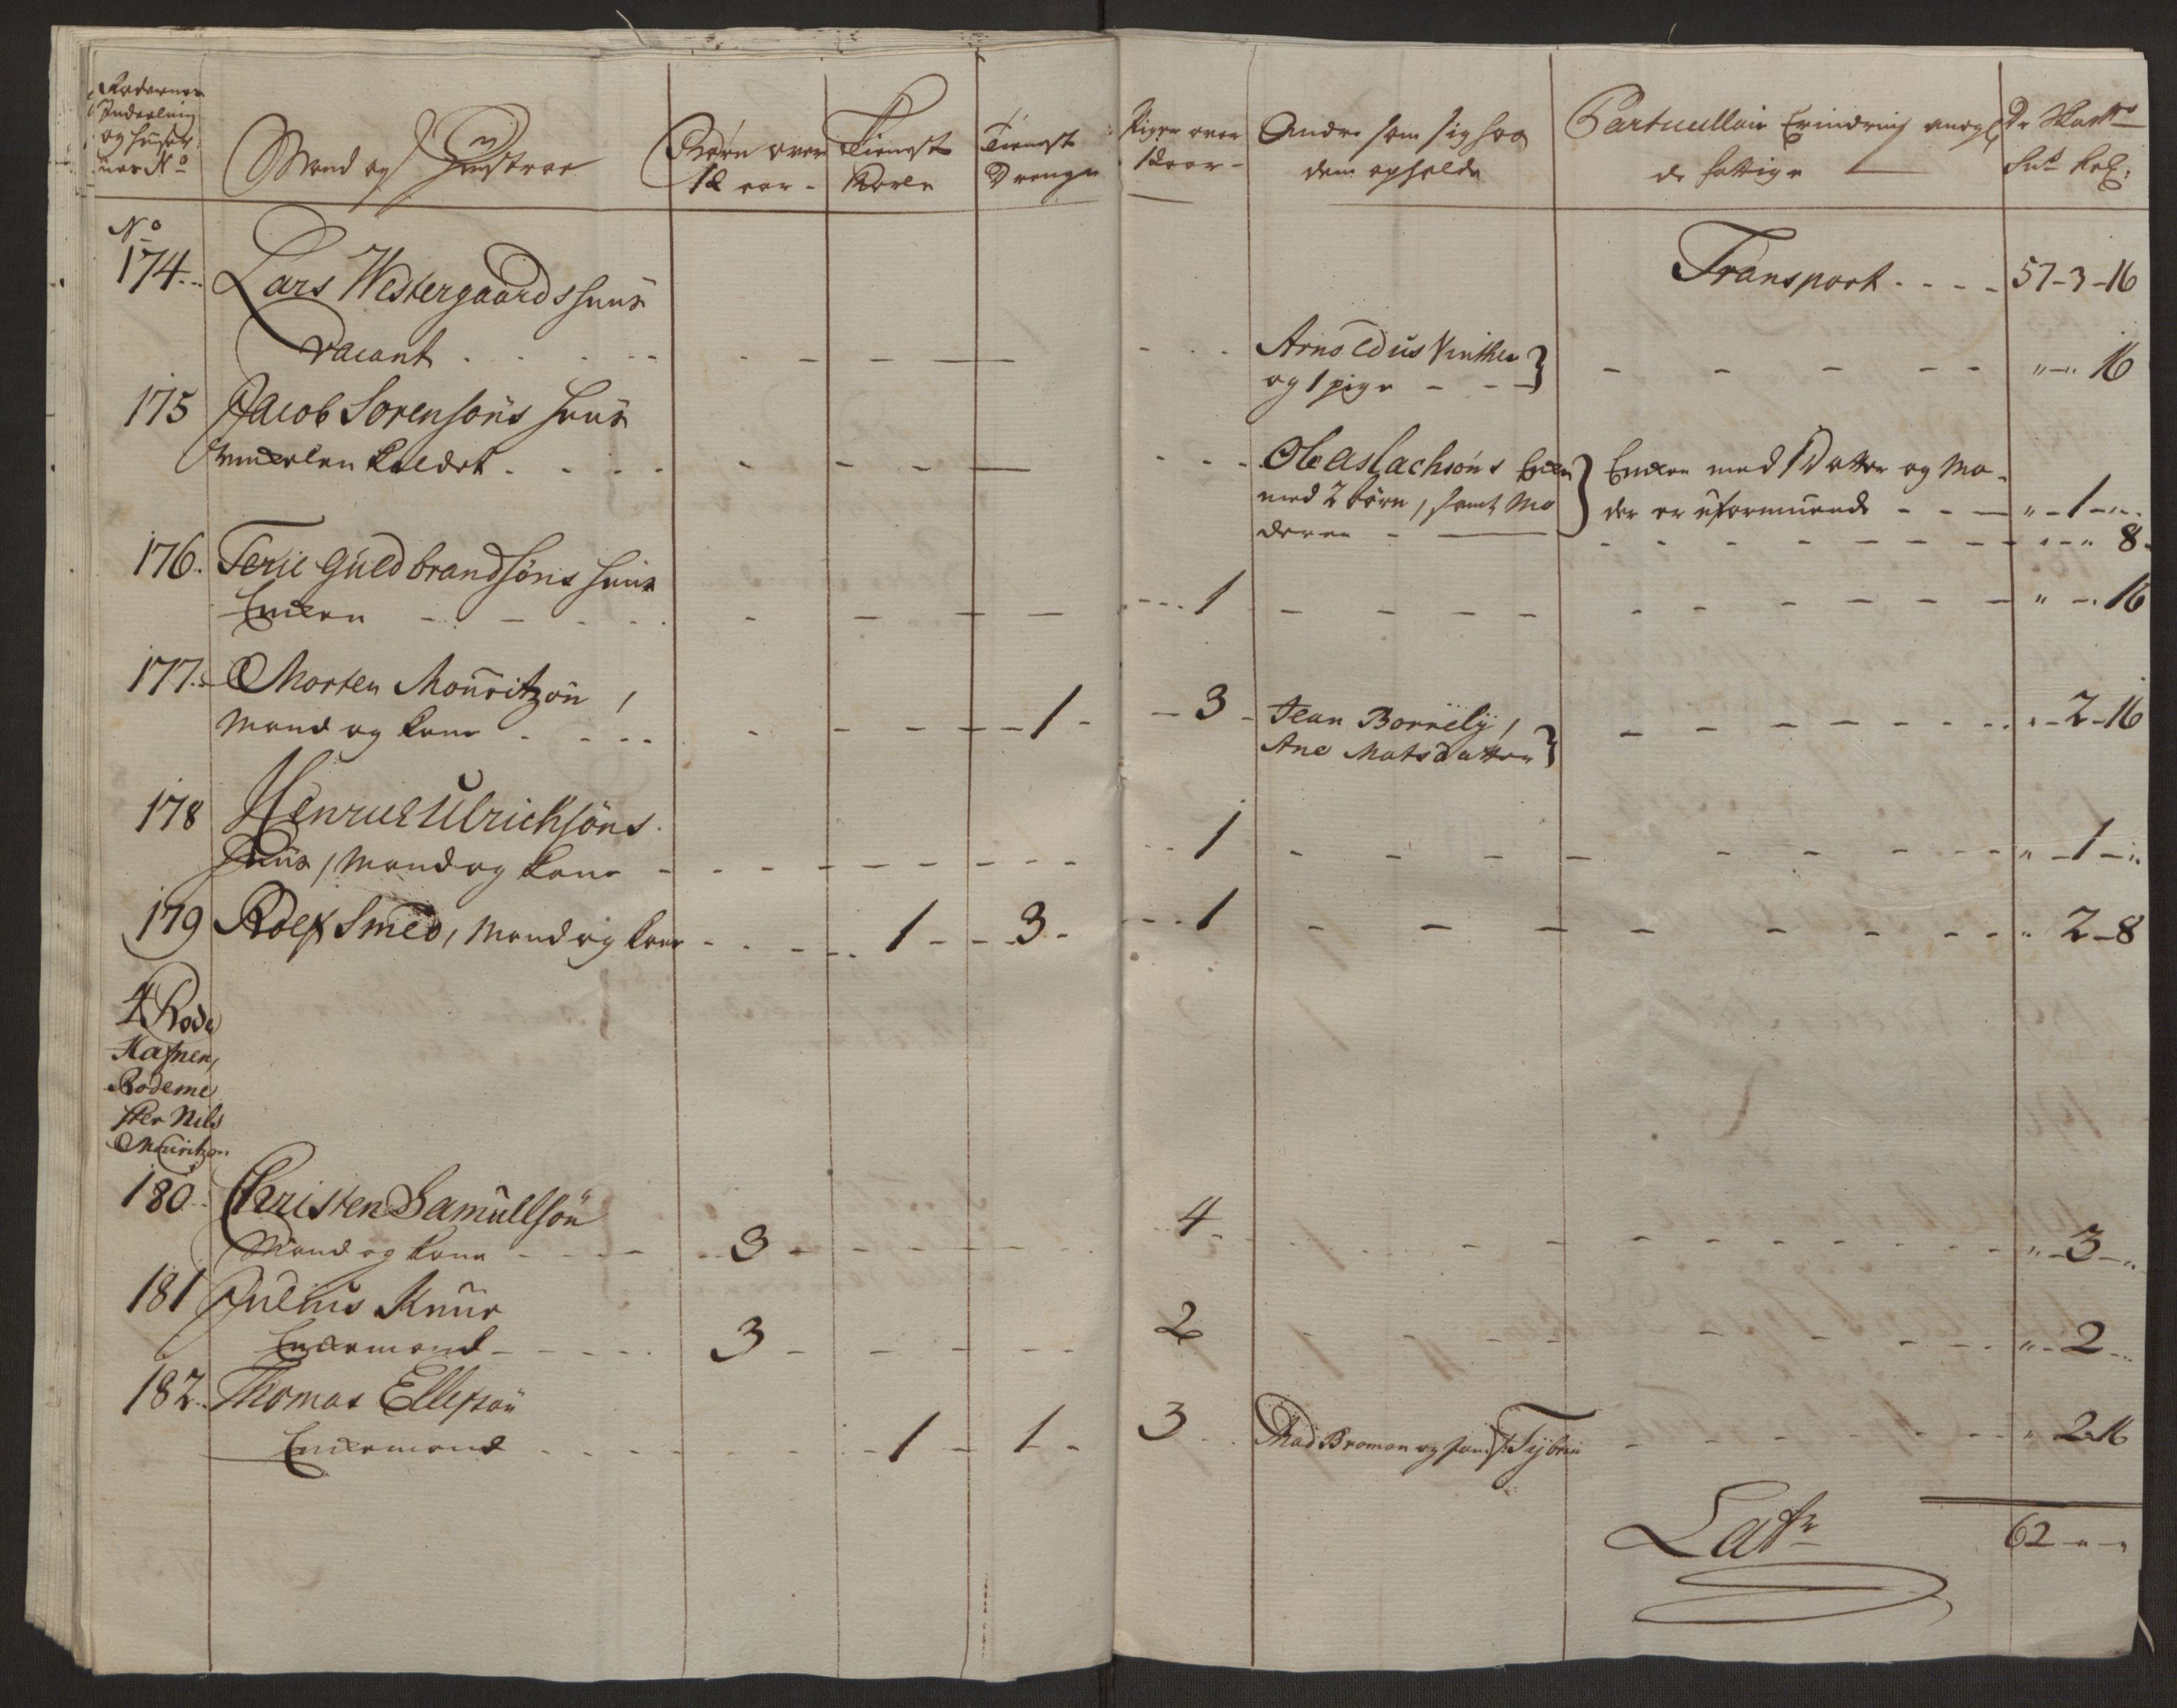 Rodernes
Inddeling
og huusenes
No
Mand og Hustrue
Børn over
12 aar
Tienest
Karle
Tienest
Drenge
Piger over
12 aar
Andre som sig hos
dem opholde
Particullair Erindring
de fattige
No
174 Lars Westergaards huus
vacant
Transport 57-3-16
Arnoldus Vinther
og 1 pige 16
175 Jacob Sorensøns huus
kaldet
Ole Aslachsøns Enke
med 2 børn, samt Mo
deren
Enken med 1 Datter og Mo-
der er uformuende 1
8
176 Terie Guldbrandsøns huus
Enken 1 16
177 Morten Mouritzøn,
Mand og Kone 1 3
Jean Borrely,
Ane Matsdatter 2-16
178 Henric Ulrichsøns
huus, Mand og Kone 1 1
179 Roef Smed, Mand og Kone 1 3 1 2-8
4 Rode
Hafnen,
Rodeme
ster Nils
Mouritzøn
180 Christen Samuelsøn
Mand og Kone 3 4 3
181 Julius Knur
Enkemand 3 2 2
182 Thomas Ellefsøn
Enkemand 1 1 3 Mad Broman og 2-16
Latr 62